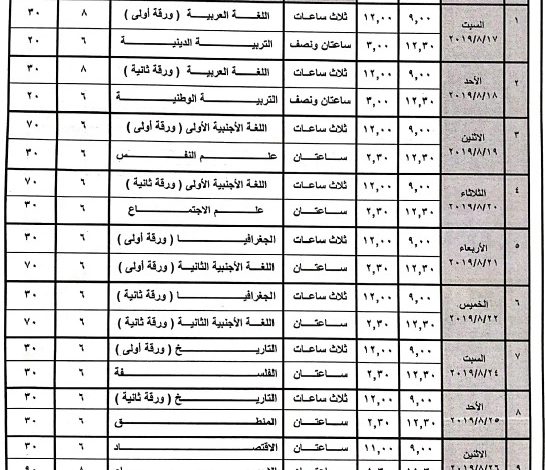 ١ السبت ٢٠١٩/٨/١٧ ٩,٠٠ ١٢,٠٠ ثلاث ساعات اللغة العربية ( ورقة أولى ) ٨ ٣٠
١٢,٣٠ ٣,٠٠ ساعتان ونصف التربية الدينية ٦ ٢٠
٢ الأحد ٢٠١٩/٨/١٨ ٩,٠٠ ١٢,٠٠ ثلاث ساعات اللغة العربية ( ورقة ثانية ) ٨ ٣٠
١٢,٣٠ ٣,٠٠ ساعتان ونصف التربية الوطنية ٦ ٢٠
٣ الاثنين ٢٠١٩/٨/١٩ ٩,٠٠ ١٢,٠٠ ثلاث ساعات اللغة الأجنبية الأولى ( ورقة أولى ) ٦ ٧٠
١٢,٣٠ ٢,٣٠ ساعتان علم النفس ٦ ٣٠
٤ الثلاثاء ٢٠١٩/٨/٢٠ ٩,٠٠ ١٢,٠٠ ثلاث ساعات اللغة الأجنبية الأولى ( ورقة ثانية ) ٦ ٧٠
١٢,٣٠ ٢,٣٠ ساعتان علم الاجتماع ٦ ٣٠
٥ الأربعاء ٢٠١٩/٨/٢١ ٩,٠٠ ١٢,٠٠ ثلاث ساعات الجغرافيا ( ورقة أولى ) ٦ ٣٠
١٢,٣٠ ٢,٣٠ ساعتان اللغة الأجنبية الثانية ( ورقة أولى ) ٦ ٧٠
٦ الخميس ٢٠١٩/٨/٢٢ ٩,٠٠ ١٢,٠٠ ثلاث ساعات الجغرافيا ( ورقة ثانية ) ٦ ٣٠
١٢,٣٠ ٢,٣٠ ساعتان اللغة الأجنبية الثانية ( ورقة ثانية ) ٦ ٧٠
٧ السبت ٢٠١٩/٨/٢٤ ٩,٠٠ ١٢,٠٠ ثلاث ساعات التاريخ ( ورقة أولى ) ٦ ٣٠
١٢,٣٠ ٢,٣٠ ساعتان الفلسفة ٦ ٣٠
٨ الأحد ٢٠١٩/٨/٢٥ ٩,٠٠ ١٢,٠٠ ثلاث ساعات التاريخ ( ورقة ثانية ) ٦ ٣٠
١٢,٣٠ ٢,٣٠ ساعتان المنطق ٦ ٣٠
٩ الاثنين ٢٠١٩/٨/٢٦ ٩,٠٠ ١١,٠٠ ساعتان الاقتصاد ٦ ٣٠